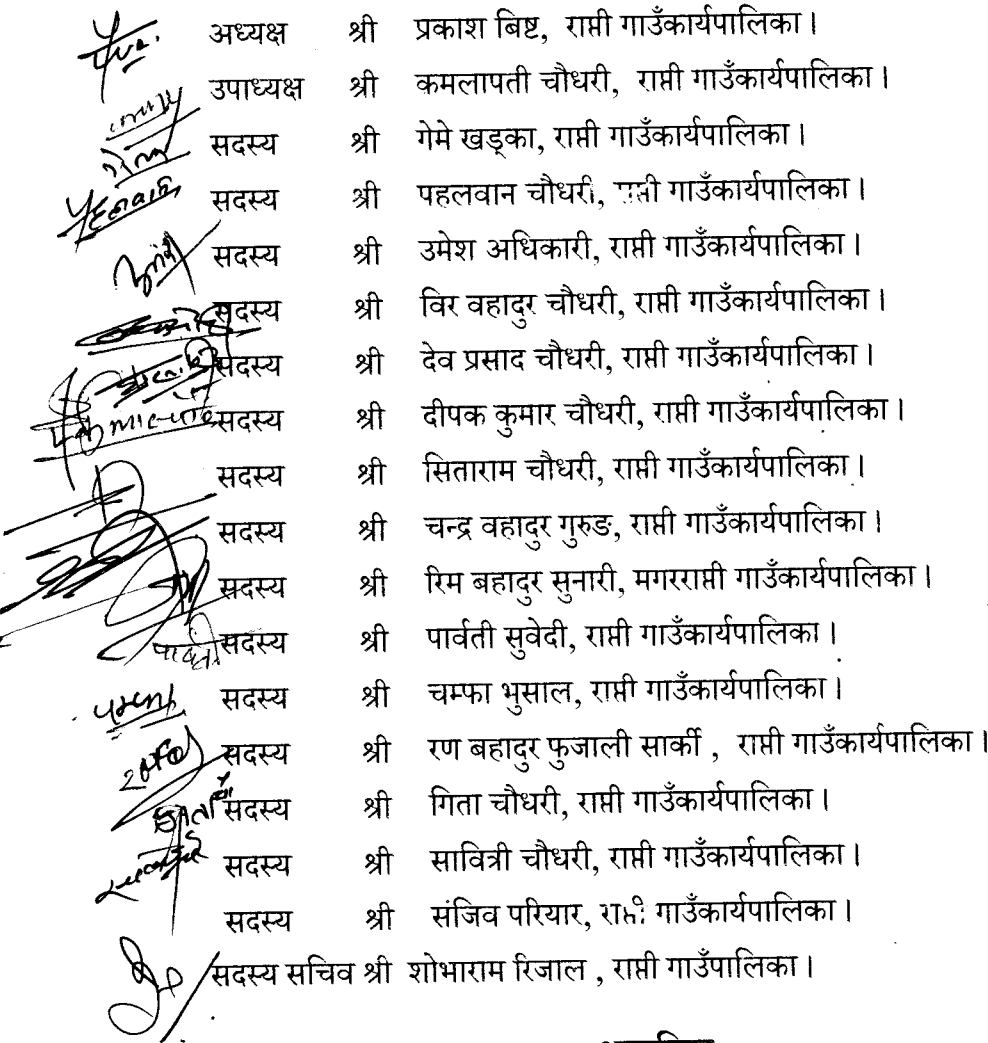 अध्यक्ष श्री प्रकाश बिष्ट, राप्ती गाउँकार्यपालिका।
उपाध्यक्ष श्री कमलापती चौधरी, राप्ती गाउँकार्यपालिका।
सदस्य श्री गेमे खड्का, राप्ती गाउँकार्यपालिका।
सदस्य श्री पहलवान चौधरी, राप्ती गाउँकार्यपालिका।
सदस्य श्री उमेश अधिकारी, राप्ती गाउँकार्यपालिका।
सदस्य श्री विर वहादुर चौधरी, राप्ती गाउँकार्यपालिका।
सदस्य श्री देव प्रसाद चौधरी, राप्ती गाउँकार्यपालिका।
सदस्य श्री दीपक कुमार चौधरी, राप्ती गाउँकार्यपालिका।
सदस्य श्री सिताराम चौधरी, राप्ती गाउँकार्यपालिका।
सदस्य श्री चन्द्र वहादुर गुरुङ, राप्ती गाउँकार्यपालिका।
सदस्य श्री रिम बहादुर सुनारी, मगरराप्ती गाउँकार्यपालिका।
सदस्य श्री पार्वती सुवेदी, राप्ती गाउँकार्यपालिका।
सदस्य श्री चम्फा भुसाल, राप्ती गाउँकार्यपालिका।
सदस्य श्री रण बहादुर फुजाली सार्की , राप्ती गाउँकार्यपालिका।
सदस्य श्री गिता चौधरी, राप्ती गाउँकार्यपालिका।
सदस्य श्री सावित्री चौधरी, राप्ती गाउँकार्यपालिका।
सदस्य श्री संजिव परियार, राप्ती गाउँकार्यपालिका।
सदस्य सचिव श्री शोभाराम रिजाल , राप्ती गाउँपालिका।